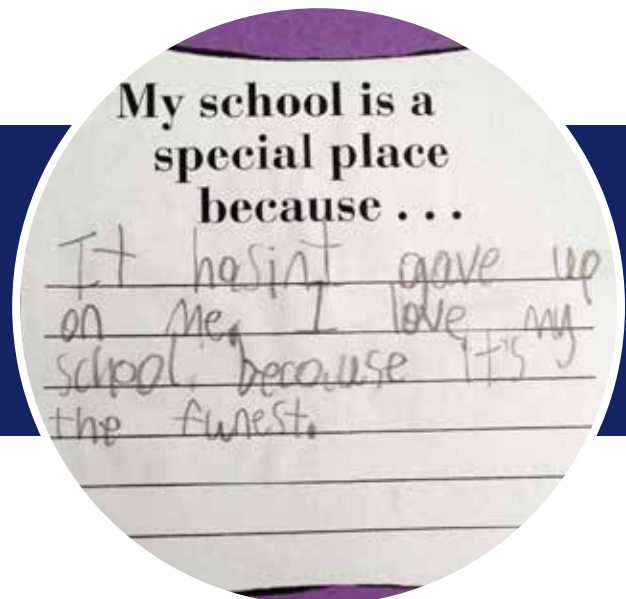 My school is a
special place
because . . .
It hasint gave up
on me. I love my
school because it's
the funest.